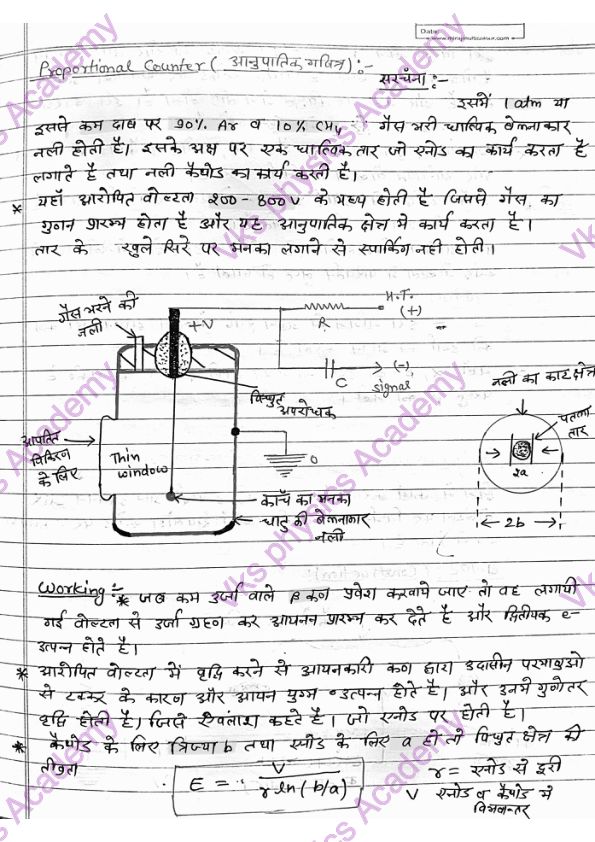 Date:
www.nirajinotbookan.com
Proportional Counter ( आनुपातिक गणित्र ) :-
सरंचना :-
इसमें 1 atm या
इससे कम दाब पर 90% Ar व 10% CH4 गैस भरी धात्विक बेलनाकार
नली होती है। इसके अक्ष पर एक धात्विक तार जो एनोड का कार्य करता है
लगाते है तथा नली कैथोड का कार्य करती है।
* यहाँ आरोपित वोल्टता 200 - 800V के मध्य होती है जिससे गैस का
गुणन प्रारम्भ होता है और यह आनुपातिक क्षेत्र मे कार्य करता है।
तार के खुले सिरे पर मनका लगाने से स्पार्किंग नही होती।
गैस भरने की
नली
+V
R
H.T.
(+)
C
(-)
signal
विद्युत
अवरोधक
आपतित
विकिरण
के लिए
Thin
window
0
काँच का मनका
धातु की बेलनाकार
नली
नली का कार्य क्षेत्र
पतला
तार
2a
2b
Working :- * जब कम उर्जा वाले β कण प्रवेश करवाये जाए तो वह लगायी
गई वोल्टता से उर्जा ग्रहण कर आयनन प्रारम्भ कर देते है और द्वितीयक e-
उत्पन्न होते है।
* आरोपित वोल्टता में वृद्धि करने से आयनकारी कण द्वारा उदासीन परमाणुओ
से टक्कर के कारण और आयन युग्म उत्पन्न होते है। और उनमे गुणोतर
वृद्धि होती है। जिसे ऐवलांश कहते है। जो एनोड पर होती है।
* कैथोड के लिए त्रिज्या b तथा एनोड के लिए a हो तो विधुत क्षेत्र की
तीव्रता
E = V / r ln (b/a)
r = एनोड से दूरी
V एनोड व कैथोड मे
विभवान्तर
Vks physics Academy
Vks physics Academy
Vks physics Academy